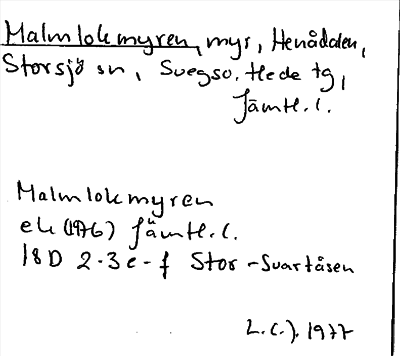 Malmlokmyren, myr, Henådalen,
Storsjö sn, Svegs o. Hede tg,
Jämtl. l.
Malmlokmyren
ek (1976) Jämtl. l.
18D 2-3e-f Stor-Svartåsen
L.C.J. 1977